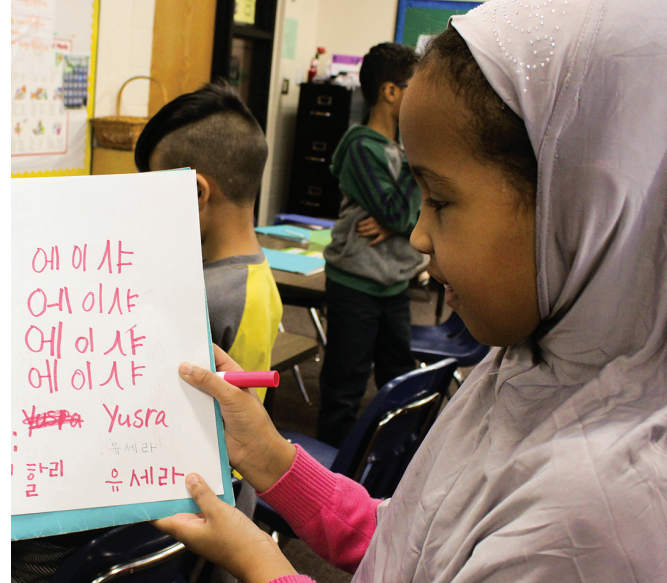 에이샤
에이샤
에이샤
에이샤
Yusra Yusra
유세라
할리 유세라